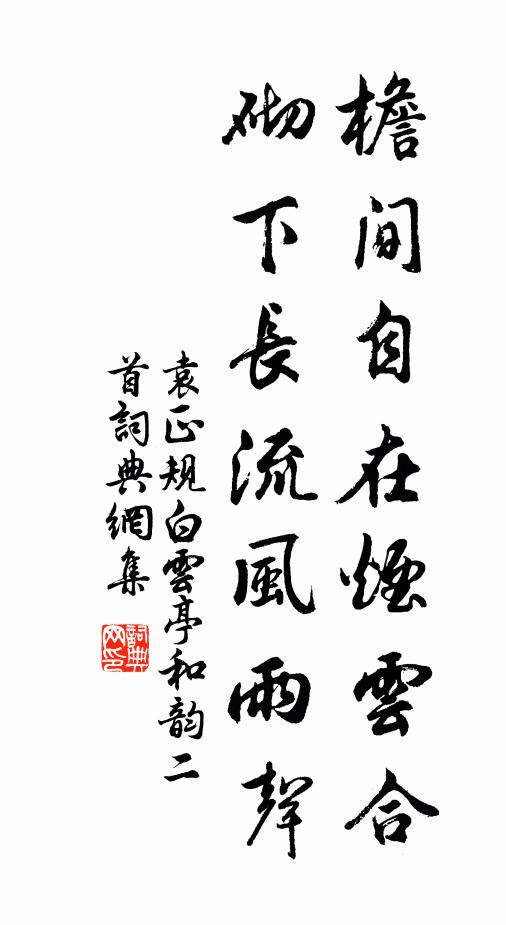 檐間自在煙雲合
砌下長流風雨聲
袁正規白雲亭和韵二
首詞典網集
詞典
网印